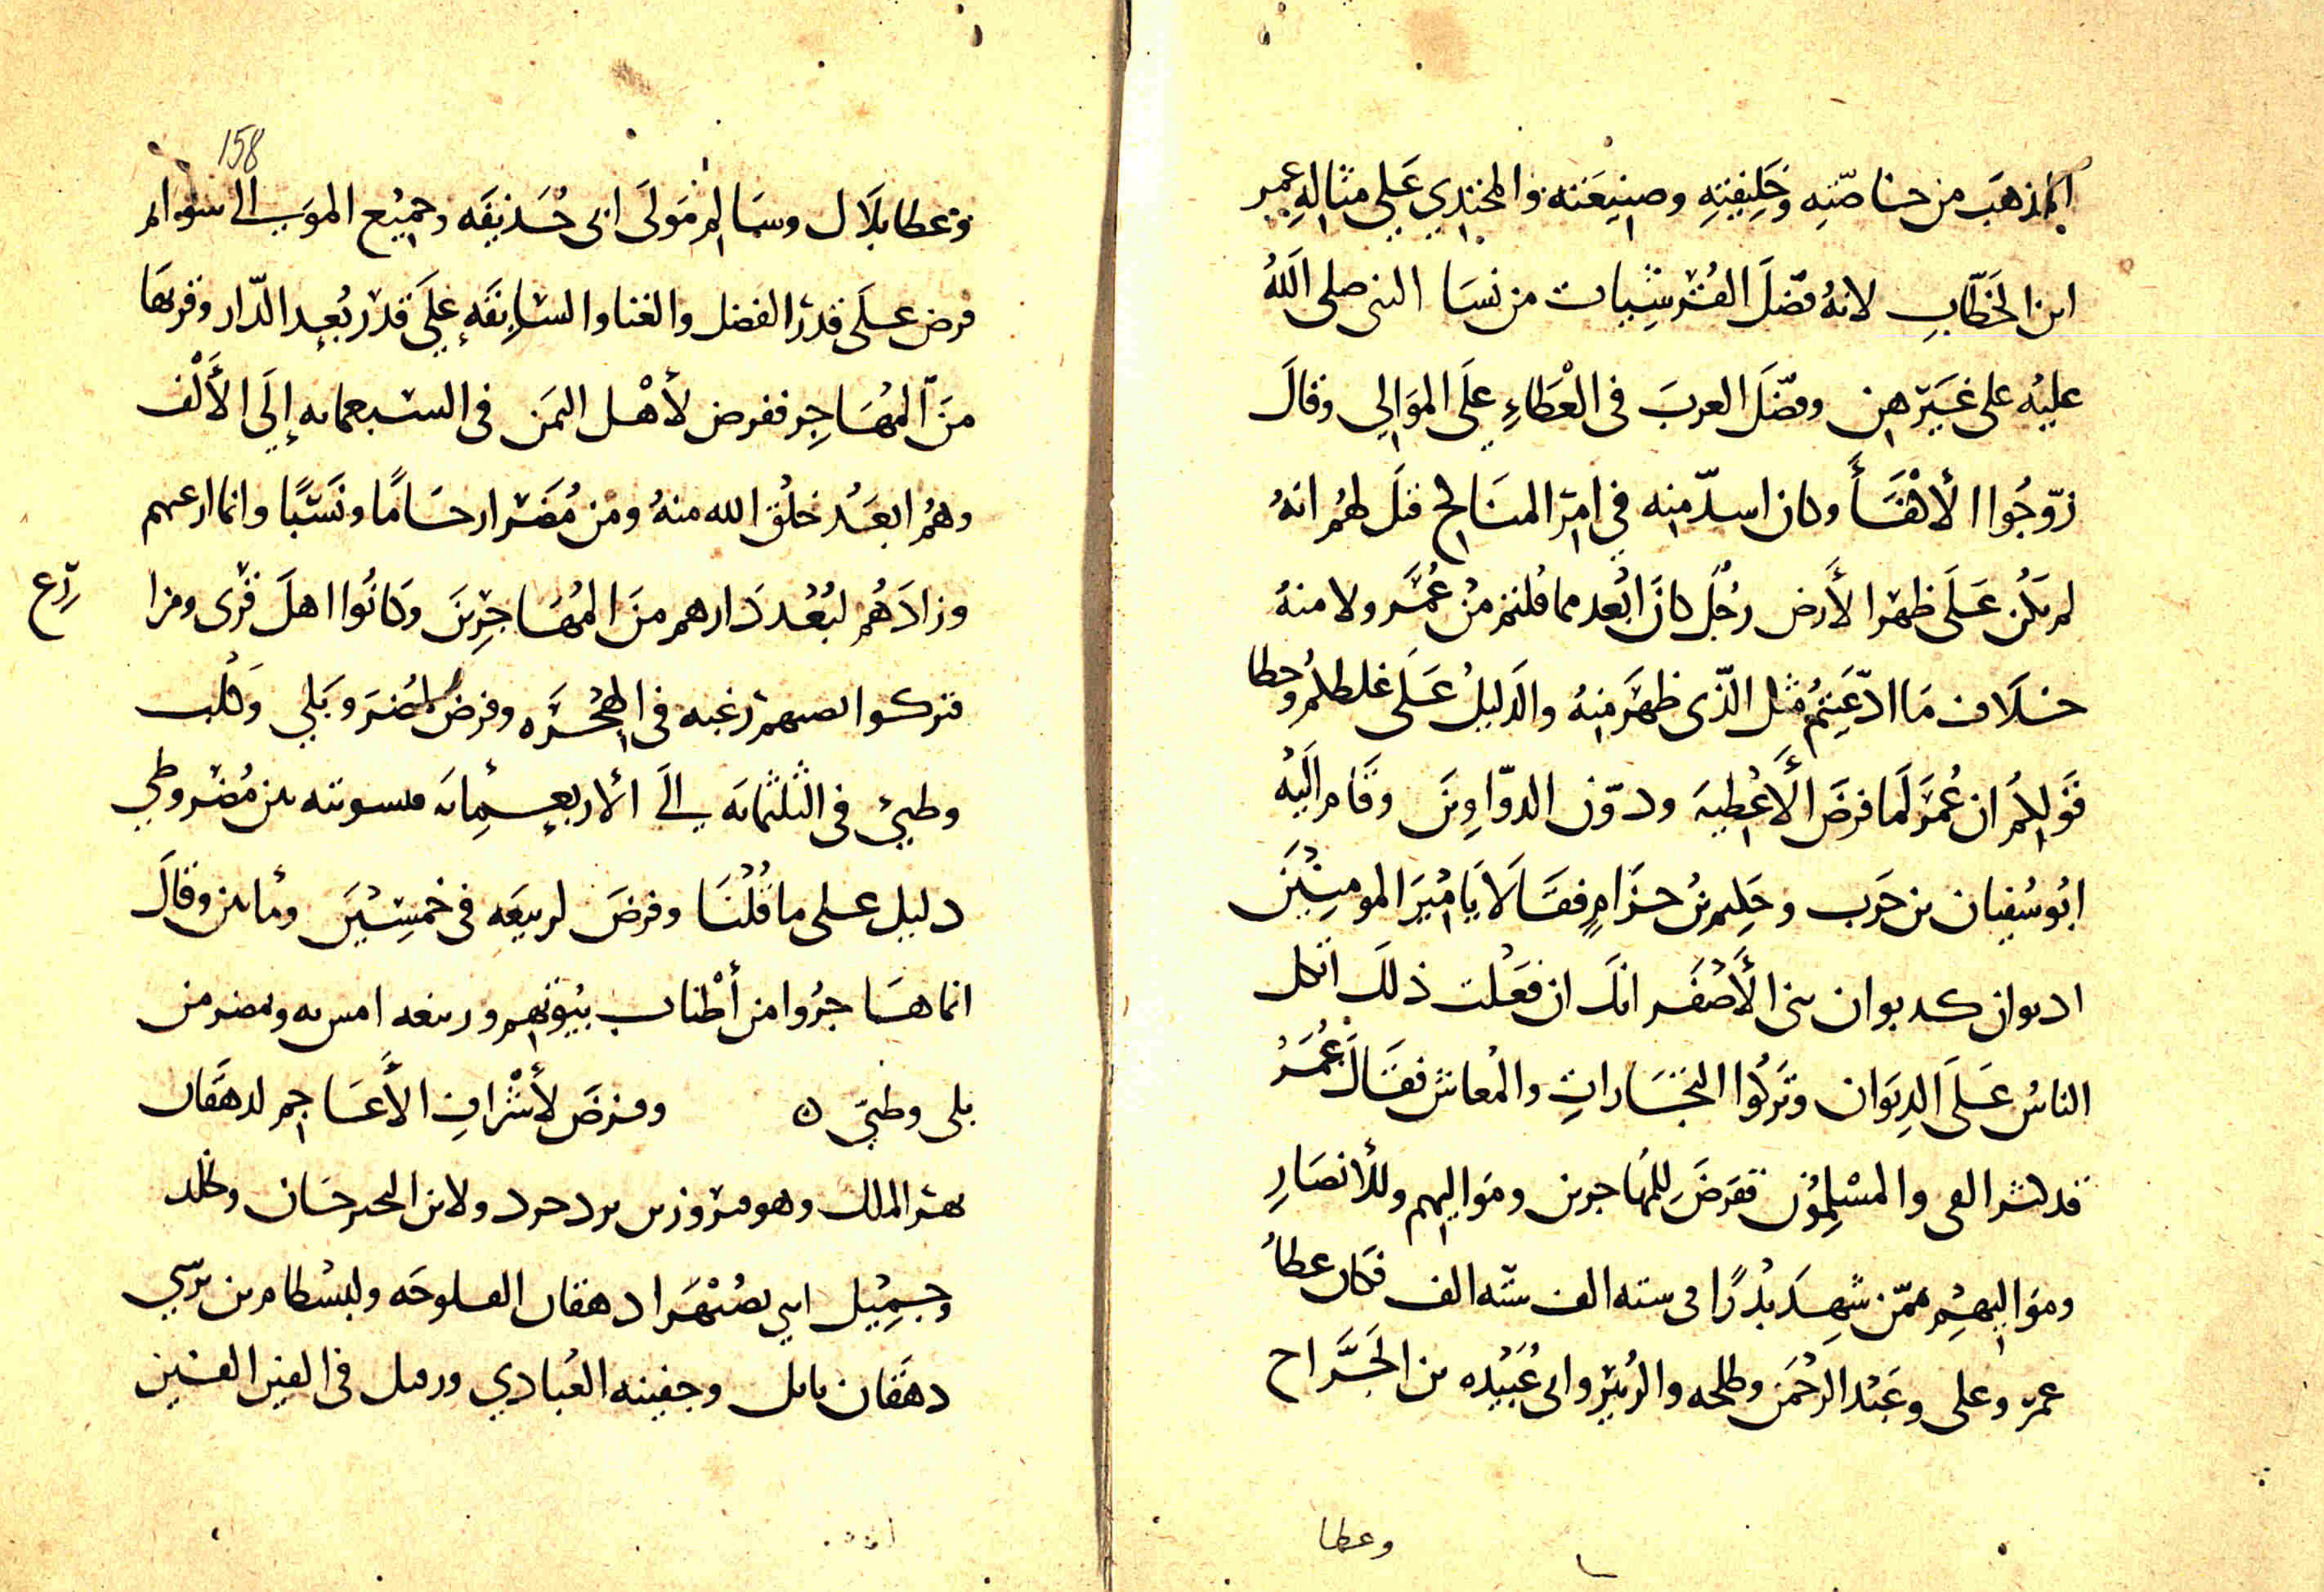 المذهب من خاصّتِه وَخَلِيفتِهِ وصنِيعَته والمحتذِي عَلى مثالِهِ عمر
ابن الخَطّابِ لانهُ فَضّلَ القُرَشِيات من نسَا النبى صلى اللَّهُ
عليْه على غَيْرهن وفضّلَ العربَ فى الْعَطاءِ علَى الموَالِي وقالَ
زوّجُوا الأكْفَأَ وكان اسدّ منه فِي امْرِ المنَاكح قيلَ لهُم انهُ
لم يَكُن عَلَى ظهر الأرض رجُل كانَ ابْعد مما قلتم مِنْ عُمَر ولا منهُ
خلَاف مَا ادّعَيتُم مثل الّذى ظهَر مِنهُ والدليلُ عَلى غلطكم وخطا
قَوْلكُم ان عُمَرَ لَما فرضَ الأَعْطِيه ودوّن الدوّاوِينَ وقَام اليْه
ابُو سُفيان بن حَرب وحَكِيم بنُ حزَامٍ فقَالَا يَا امْيرَ المومنِيْنَ
اديوان كديوان بنى الأَصْفَر انك ان فعَلْت ذلَك اتكل
الناسُ عَلَى الدِيوَان وتَركُوا التجَاراتِ والمْعاش فقَالَ عُمَرُ
قد كثر الفى والمسْلِمُون ففرَضَ لِلمُهاجرين ومَوَاليهم وللأنصَارِ
ومَوَاليهِم ممّن شهِدَ بَدْرًا فى سته الف ستّه الف فكان عطا
عمر وعلى وعَبْد الرحْمَن وطلحه والزُبَيْر وابى عُبَيْده بن الجَرَّاح
وعطا
158
وعطا بلَال وسَالم مَولَى ابى حُذيفَه وجميْع الموَالى سَوا ثم
فرض علَى قدر الفضل والغنا والسّابقَهِ عَلَى قَدْر بُعدِ الدّار وقربهَا
منَ المُهَاجِر ففرض لأهْل اليمَن فى السبعمايه إلَى الأَلْف
وهُم ابعَدُ خلْق الله منهُ ومن مُضَر ارحَامًا ونَسَبًا وانما ارعبهم
رّع
وزادَهُم لبُعْد دَارهم منَ المُهَاجِرِينَ وَكانُوا اهلَ قُرى ومزا
فتركوا رغبه فى الهِجْرَه وفرضَ لمُضرَ وبَلي وَكلْب
وطيئ فى الثلثمائه إلَى الأربعمِائه فتسويته بين مُضر وطي
دليل على ما قُلْنَا وفرضَ لربيعَه فى خمسِيْنَ ومأتين وقالَ
انما هَاجرُوا من أطْناب بيُوتهم وربيعه ومضر من
بلى وطيّ ن وفرضَ لأشْرافِ الأَعَاجم لدهقان
نهر الملك وهو فيروز بن يزدجرد ولابن النخيرخَان وخلد
وجمِيْل ابنى بصُبْهَرا دهقان الفلوجَه ولبسْطام بن نرسي
دهقَان بابل وجفينه العُبادي ورفيل فى الفين الفين